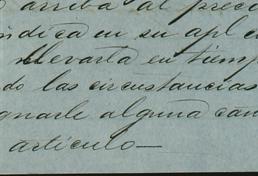 o arriba al preci
ndica en su apl c
llevarla en tiemp
do las circustancias
gnarle alguna can
articulo—